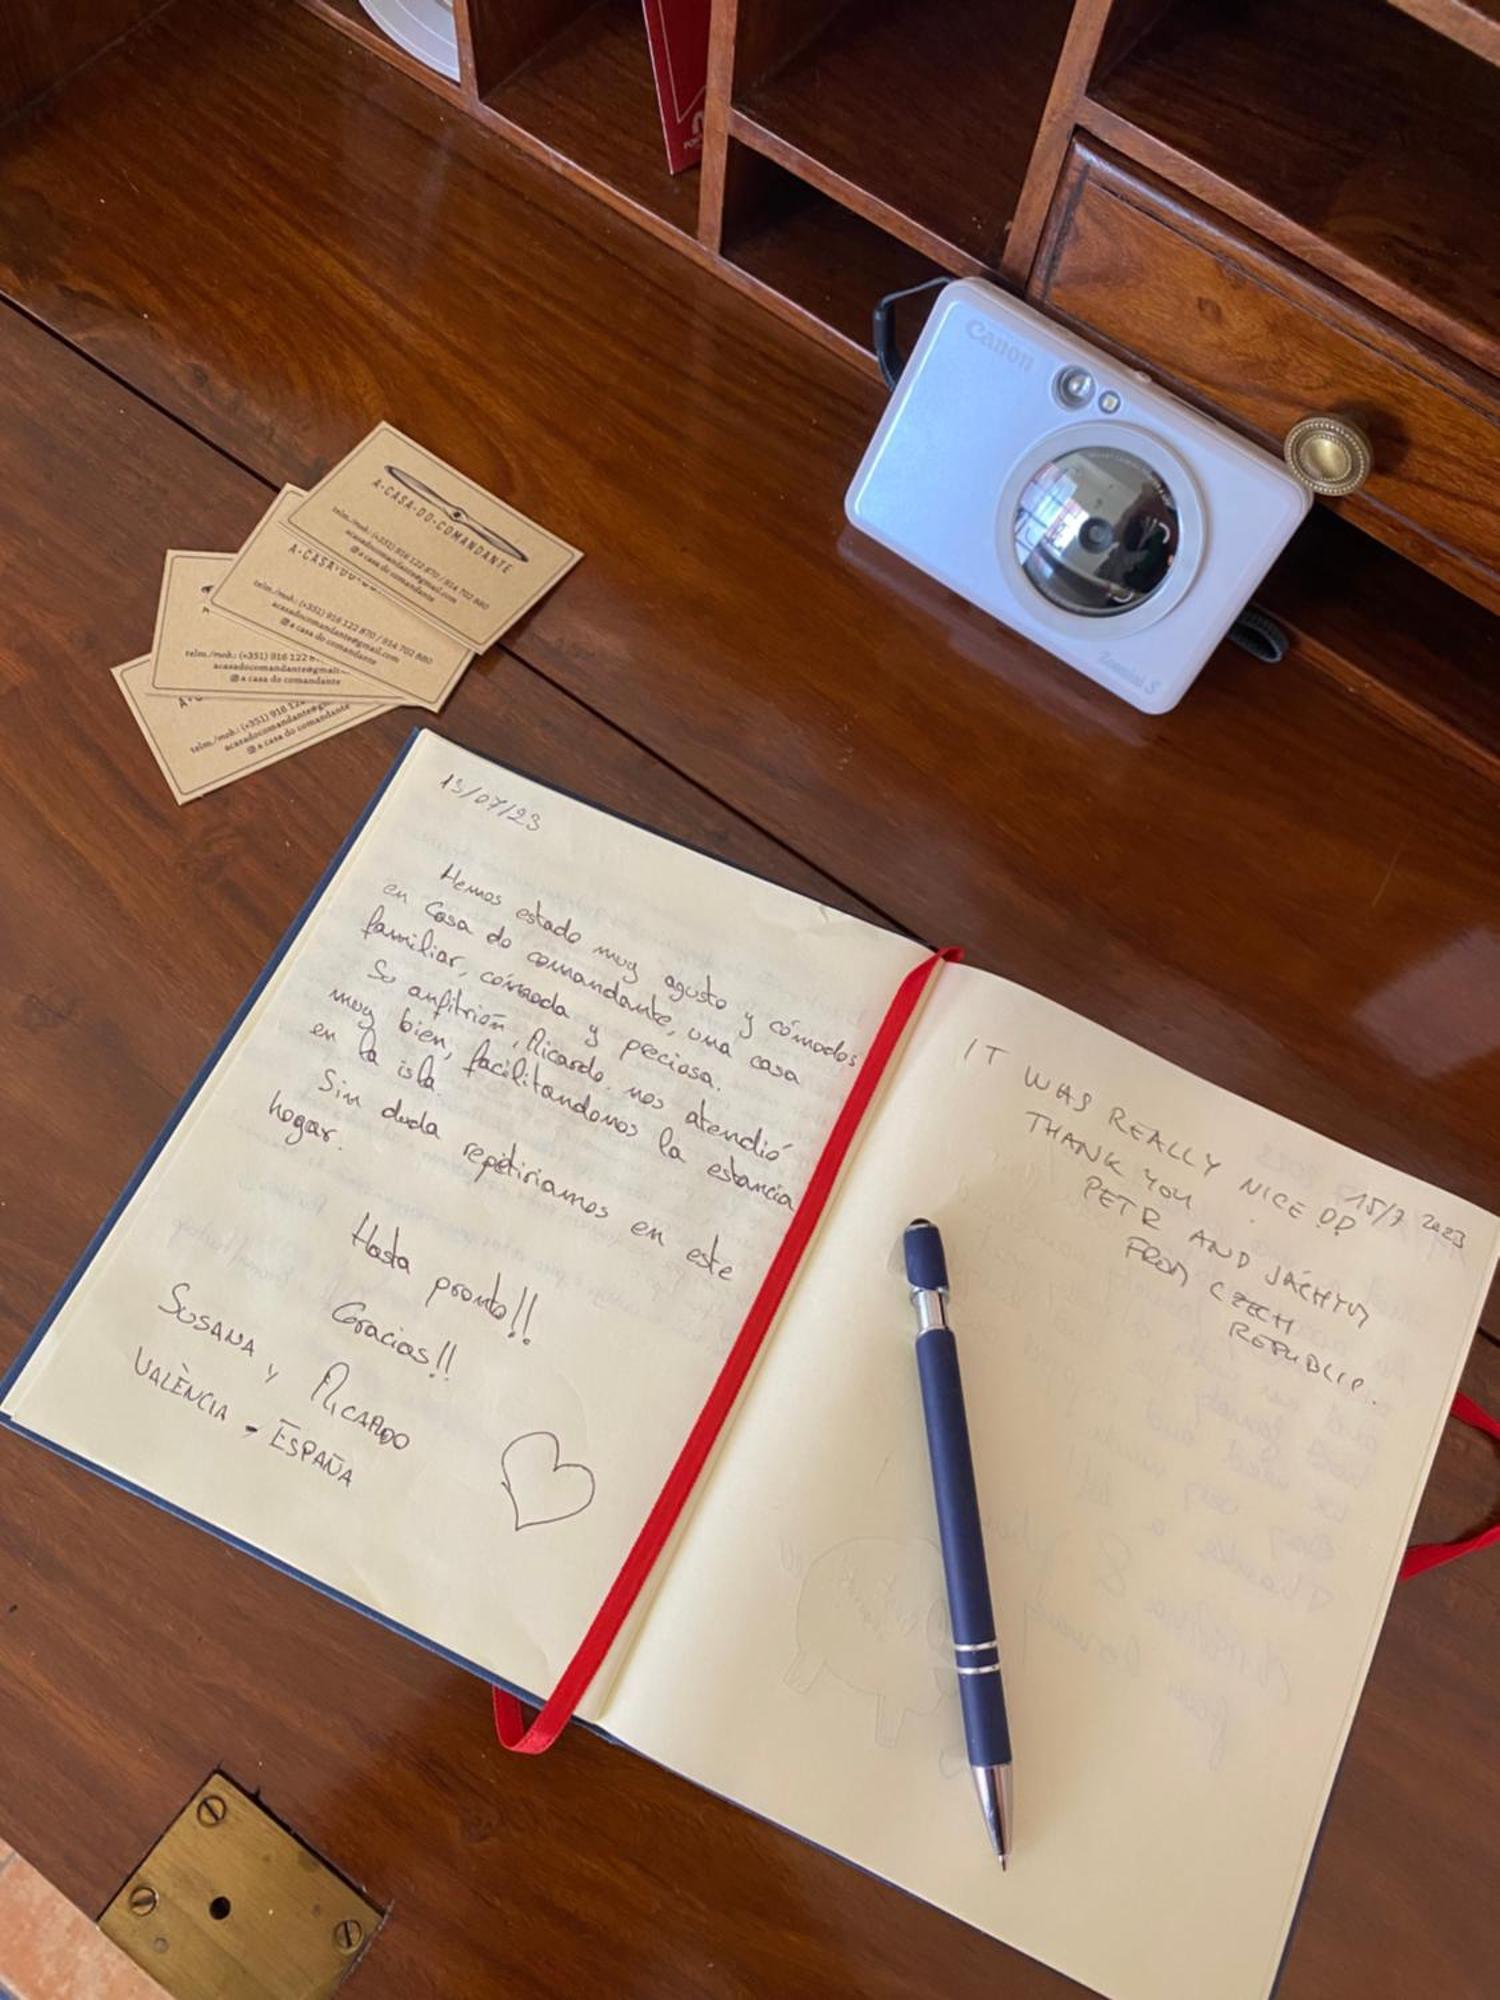 Canon
Zoemini S
A·CASA·DO·COMANDANTE
telm./mob.: (+351) 916 122 870 / 914 702 880
acasadocomandante@gmail.com
@a casa do comandante
A·CASA·DO·C
telm./mob.: (+351) 916 122 870 / 914 702 880
acasadocomandante@gmail.com
@a casa do comandante
telm./mob.: (+351) 916 122 8
acasadocomandante@gmail
@a casa do comandante
telm./mob.: (+351) 916 122
acasadocomandante@g
@a casa do comandante
13/07/23
Hemos estado muy agusto y cómodos
en Casa do comandante, una casa
familiar, cómoda y preciosa.
Su anfitrión, Ricardo, nos atendió
muy bien, facilitandonos la estancia
en la isla.
Sin duda repetiriamos en este
hogar.
Hasta pronto!!
Gracias!!
SUSANA Y RICARDO
VALÈNCIA - ESPAÑA
15/7 2023
IT WAS REALLY NICE
THANK YOU.
PETR AND JÁCHYM
FROM CZECH
REPUBLIC.